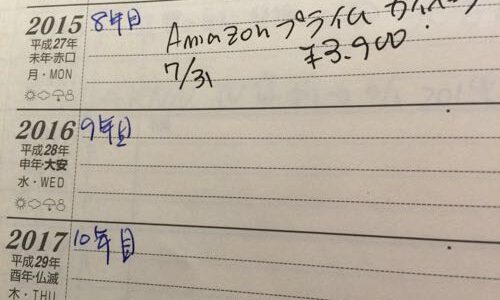 2015 8年目
平成27年
未年・赤口
月・MON
Amazonプライム
7/31 ¥3.900
2016 9年目
平成28年
申年・大安
水・WED
2017 10年目
平成29年
酉年・仏滅
木・THU